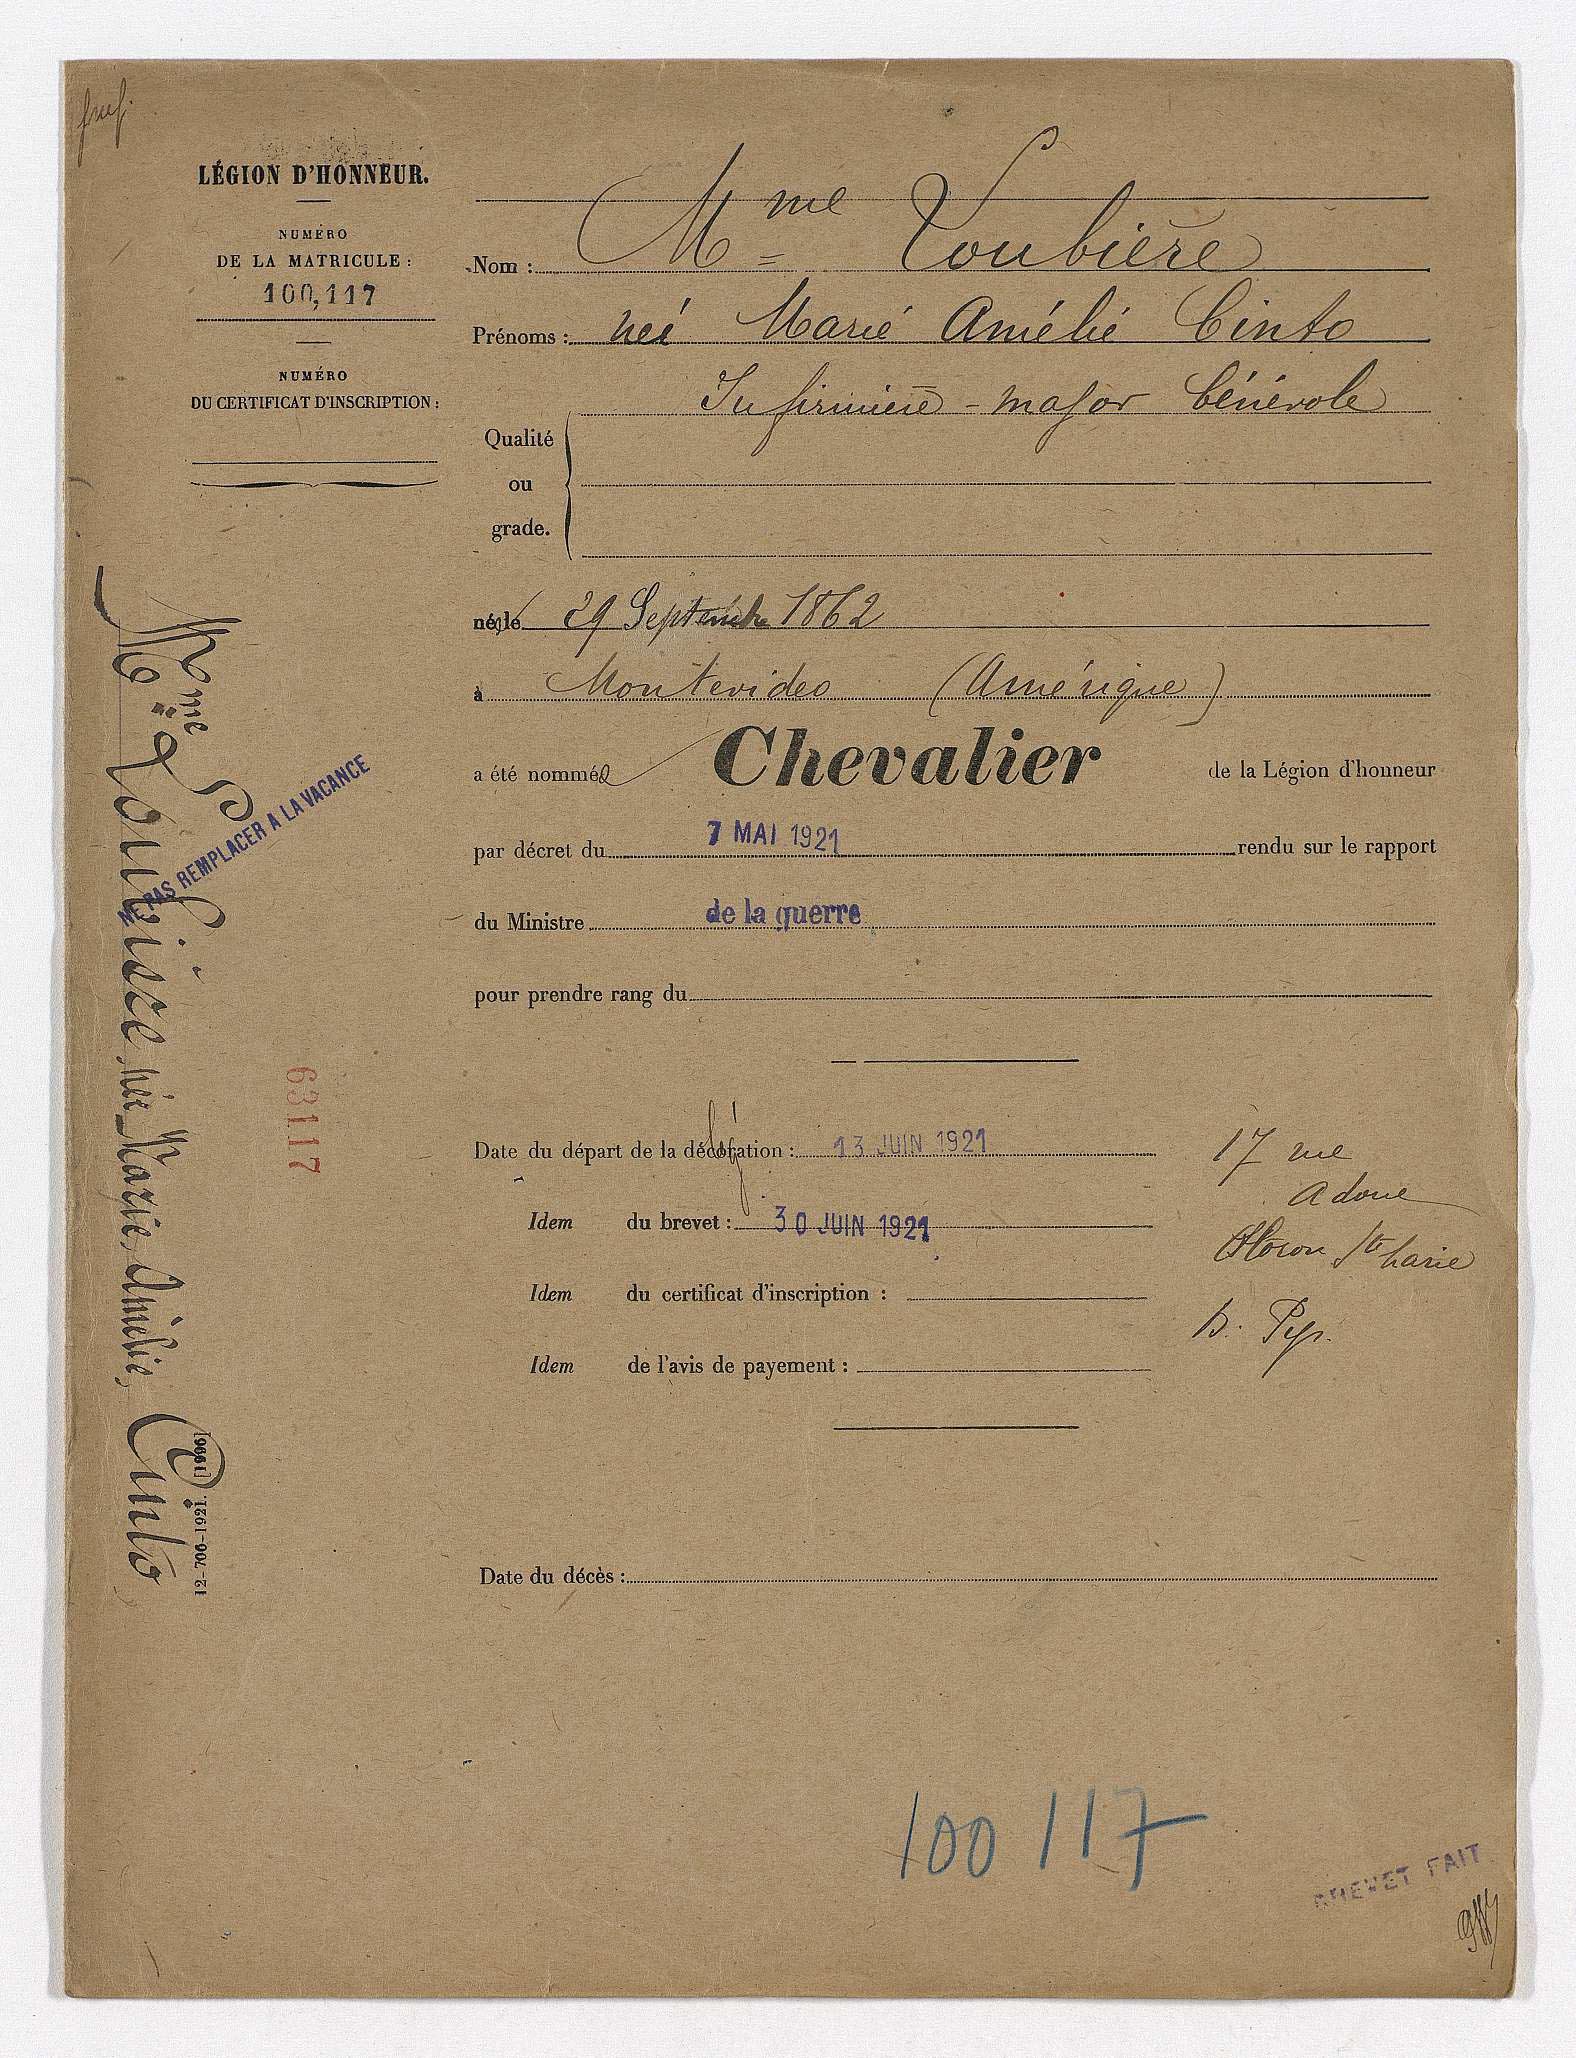 LÉGION D'HONNEUR.
NUMÉRO
DE LA MATRICULE :
100,117
NUMÉRO
DU CERTIFICAT D'INSCRIPTION :
Nom : Mme Loubière
Prénoms : née Marie Amélie Cinto
Infirmière-major bénévole
Qualité
ou
grade.
né le 29 Septembre 1862
à Montevideo (Amérique)
a été nommée Chevalier de la Légion d'honneur
par décret du 7 MAI 1921 rendu sur le rapport
du Ministre de la guerre
pour prendre rang du
Date du départ de la décoration : 13 JUIN 1921
Idem du brevet : 30 JUIN 1921
Idem du certificat d'inscription :
Idem de l'avis de payement :
17 rue
Adoue
Oloron Ste Marie
B. Pyr.
Date du décès :
Mme Loubière, née Marie, Amélie, Cinto
NE PAS REMPLACER A LA VACANCE
63117
12-706-1921. [1996]
100 117
BREVET FAIT